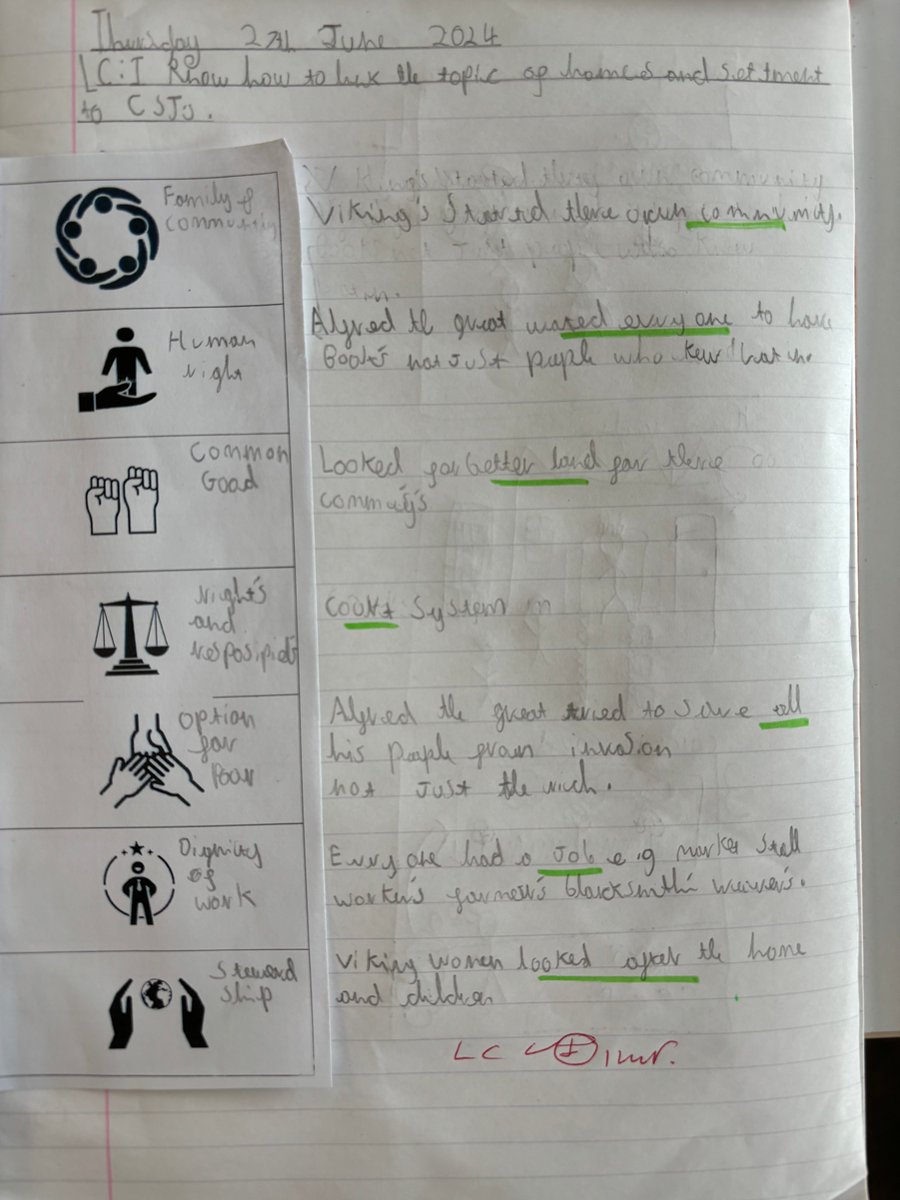 Thursday 27th June 2024
LC: I Know how to link the topic of homes and settment
to CSTs.
Family &
community
Viking's Started there own community.
Human
right
Alfred the great wated evryone to have
Books not Just people who kew
Common
Good
Looked for better land for there
commuty's
Right's
and
resposipidt
Count System
Option
for
Poor
Alfred the great tried to save all
his people from invasion
not Just the rich.
Dignity
of
work
Evryone had a Job e.g market stall
worker's farmer's blacksmith weaver's.
Steward
ship
Viking women looked after the home
and children
LC